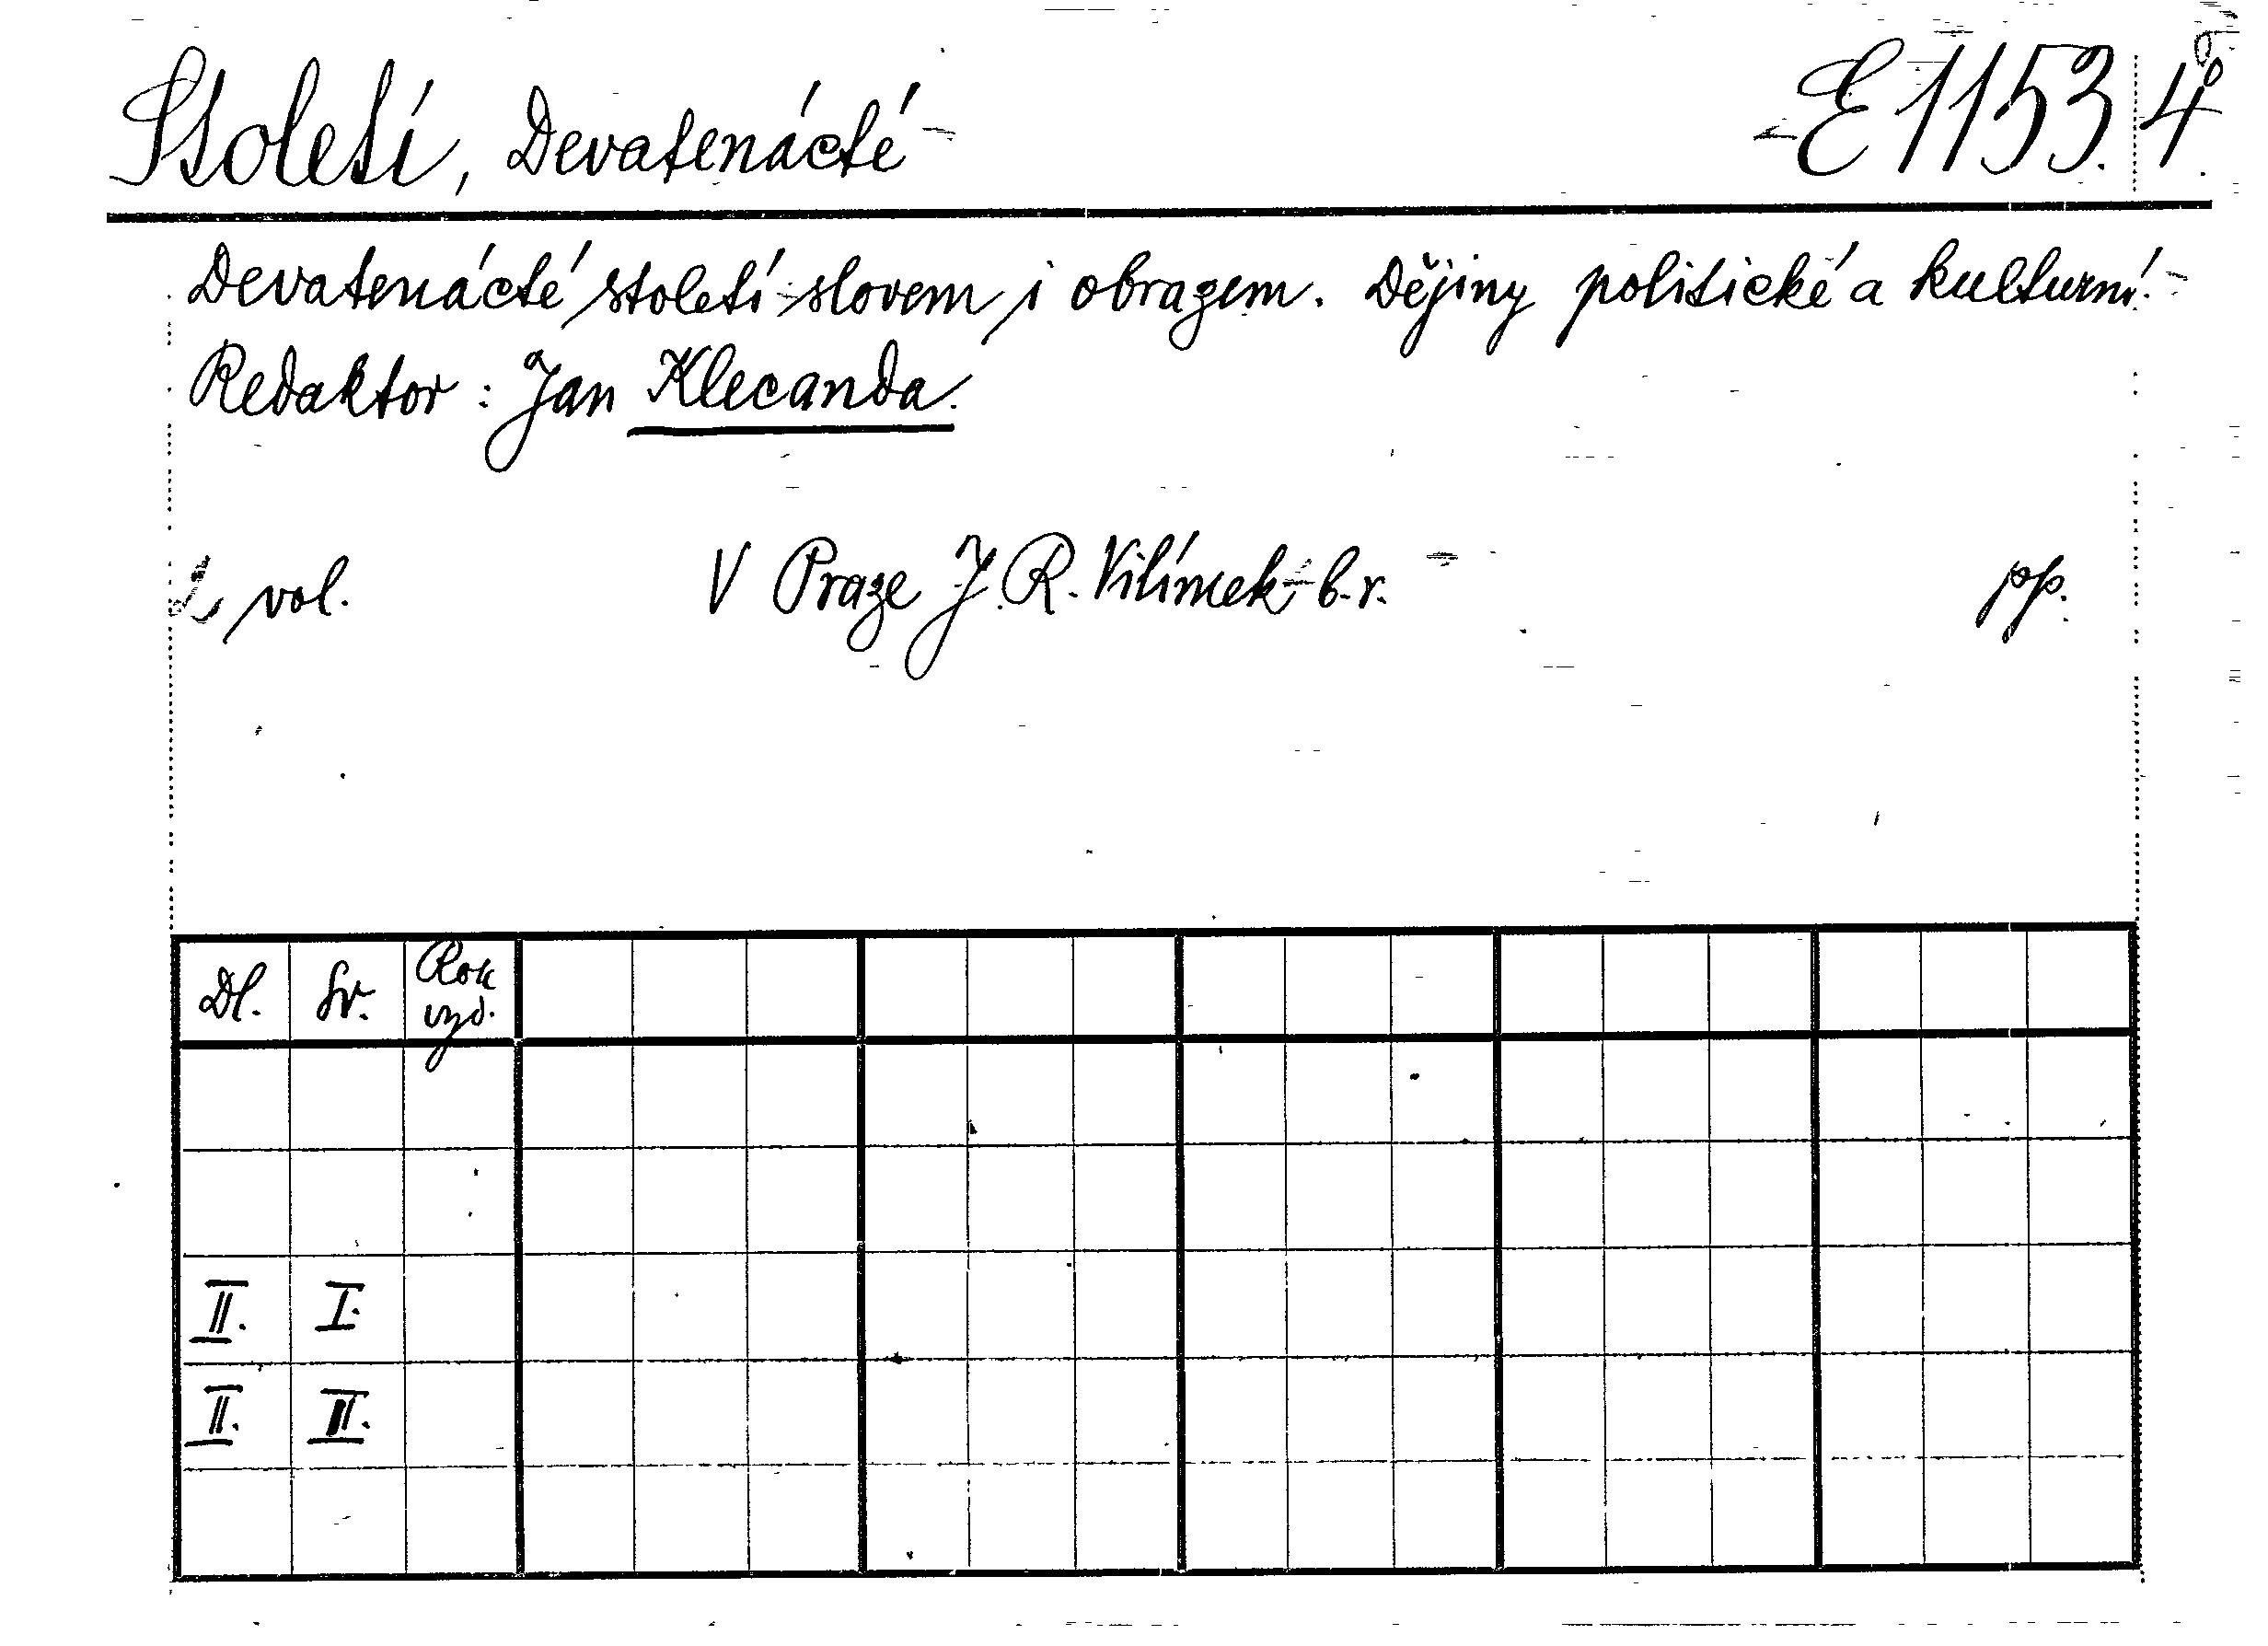 Století, Devatenácté E 1153. 4°
Devatenácté století slovem i obrazem. Dějiny politické a kulturní.
Redaktor : Jan Klecanda.
2 vol. V Praze J. R. Vilímek b. r. pp.
Dl. Sv. Rok vyd.
II. I.
II. II.